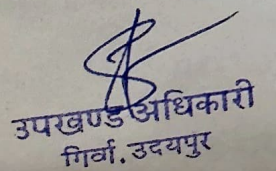 उपखण्ड अधिकारी
गिर्वा. उदयपुर